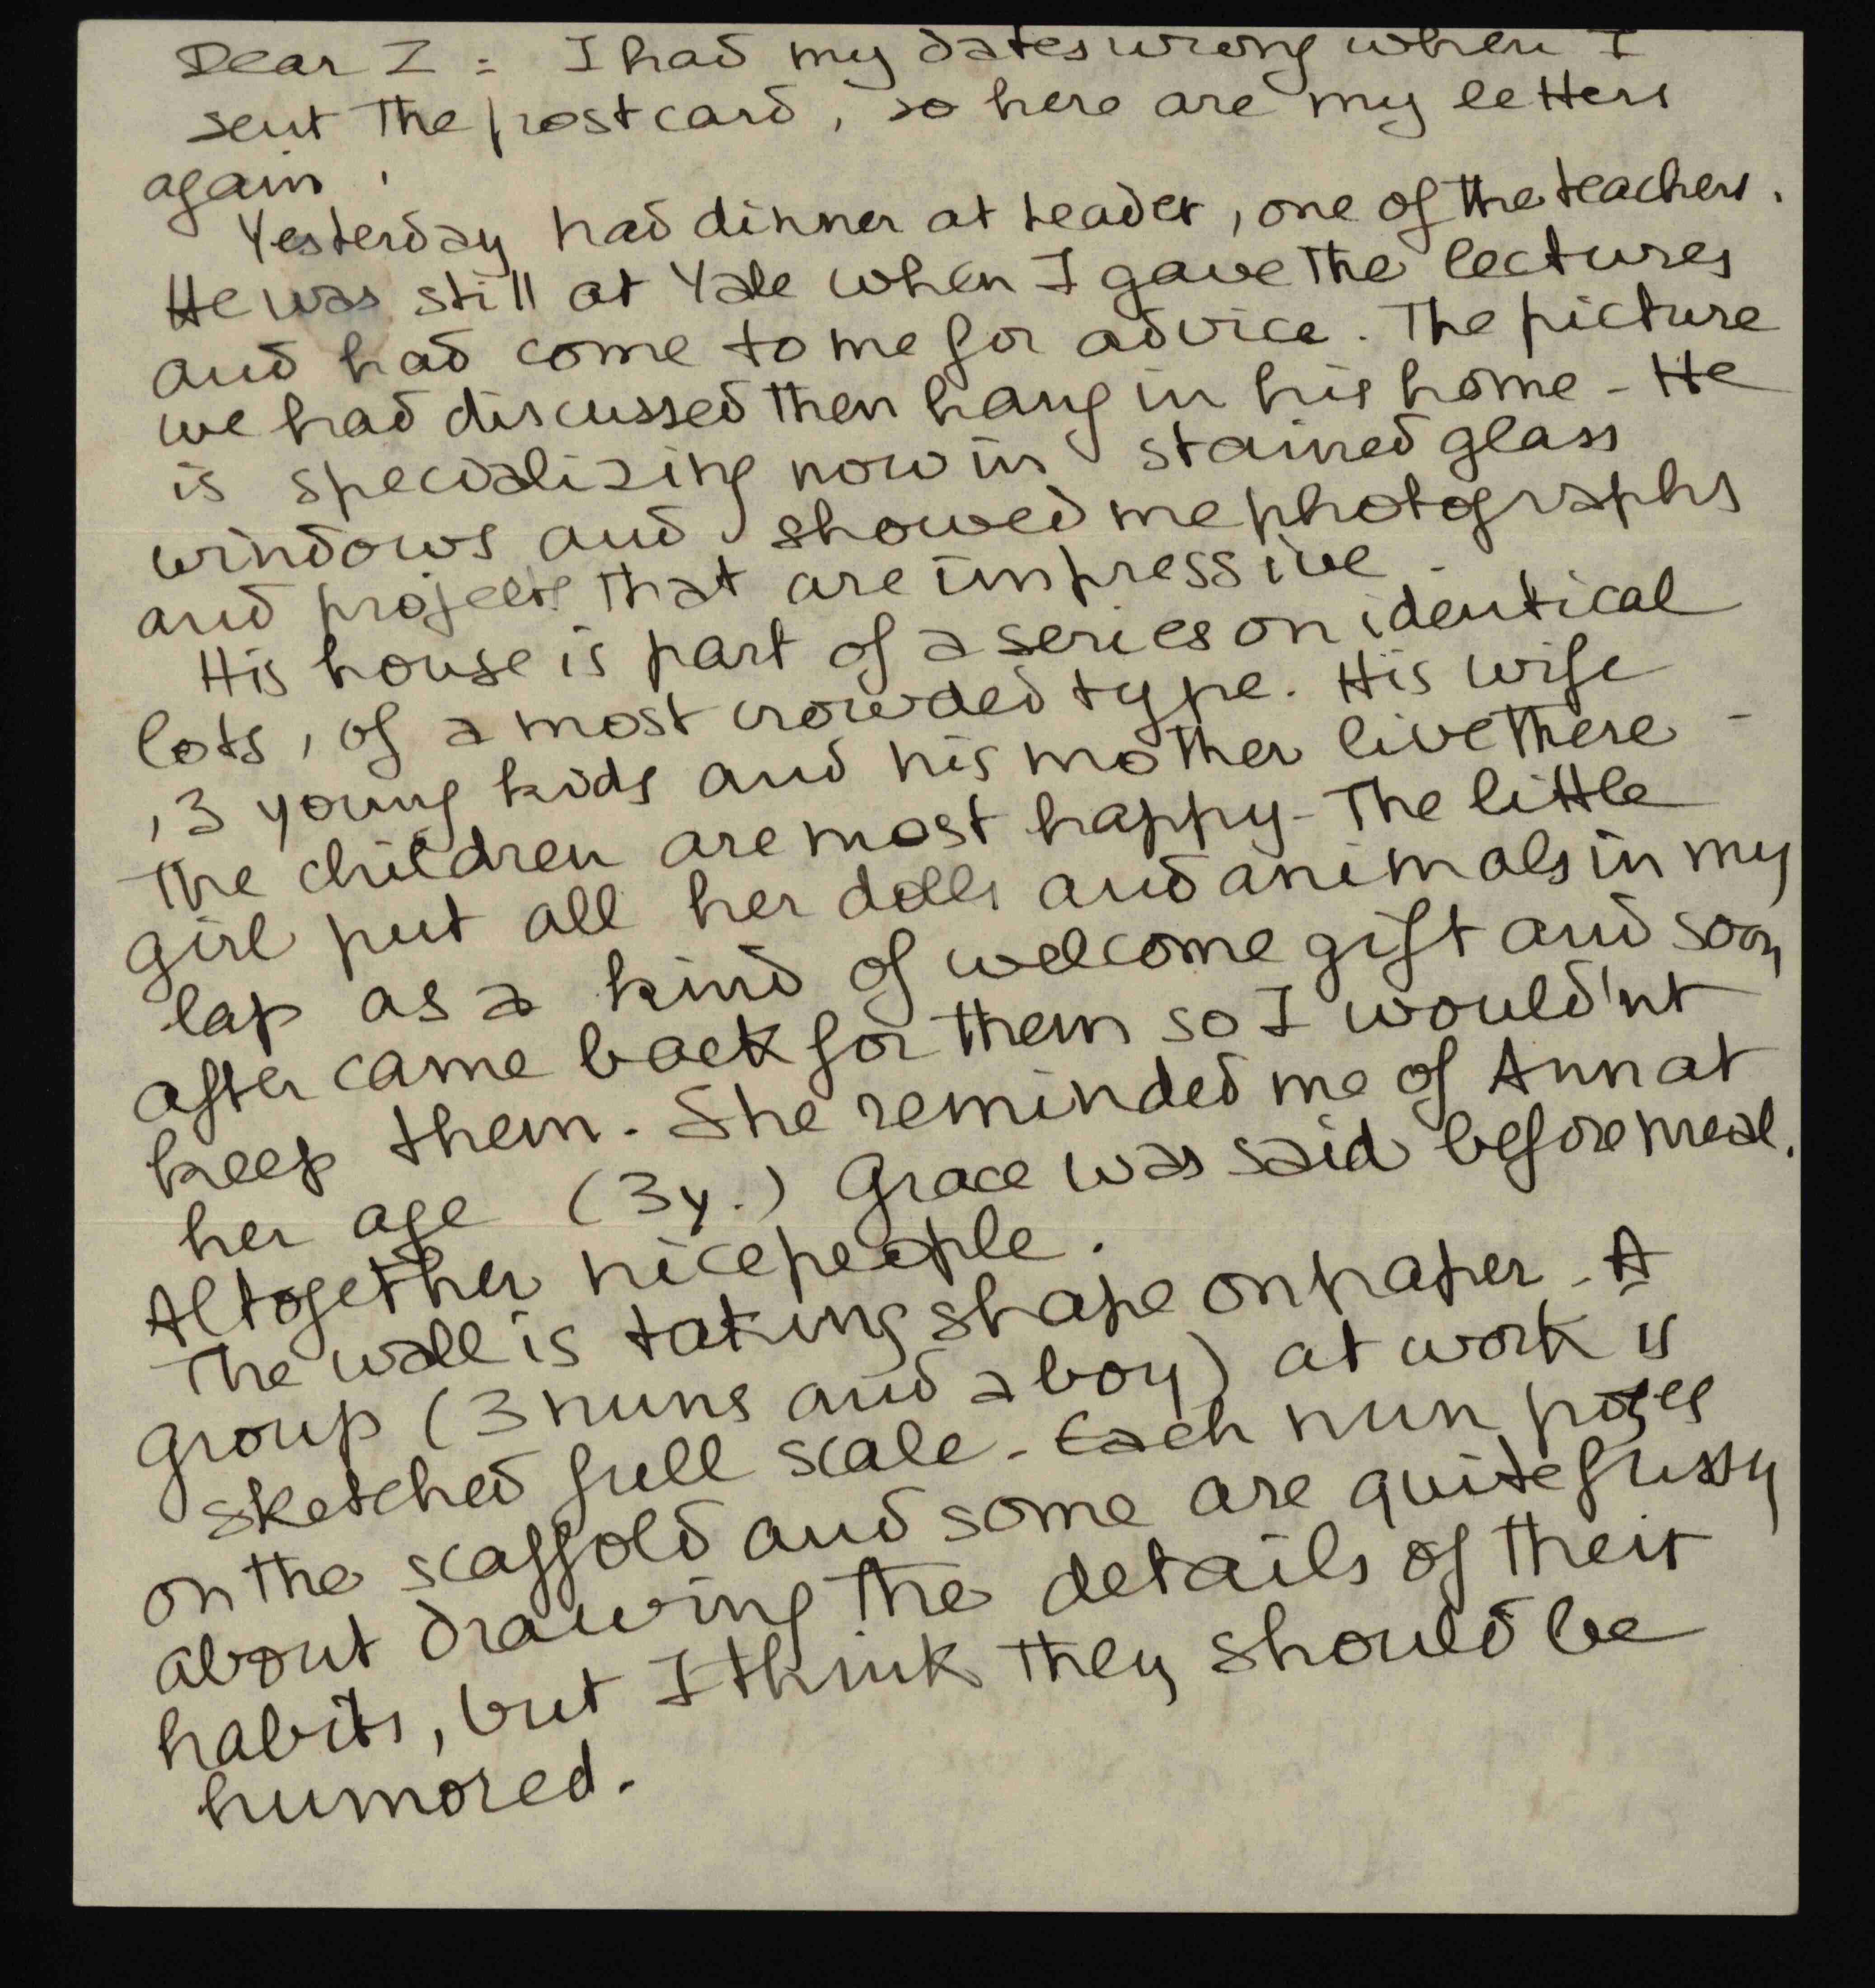 Dear Z : I had my dates wrong when I
sent the postcard, so here are my letters
again.
Yesterday had dinner at Leader, one of the teachers.
He was still at Yale when I gave the lectures
and had come to me for advice. The picture
we had discussed then hang in his home - He
is specializing now in stained glass
windows and showed me photographs
and projects that are impressive.
His house is part of a series on identical
lots, of a most crowded type. His wife
, 3 young kids and his mother live there -
The children are most happy - The little
girl put all her dolls and animals in my
lap as a kind of welcome gift and soon
after came back for them so I would'nt
keep them. She reminded me of Ann at
her age (3y.) Grace was said before meal.
Altogether nice people.
The wall is taking shape on paper - A
group (3 nuns and a boy) at work is
sketched full scale - Each nun poses
on the scaffold and some are quite fussy
about drawing the details of their
habits, but I think they should be
humored.